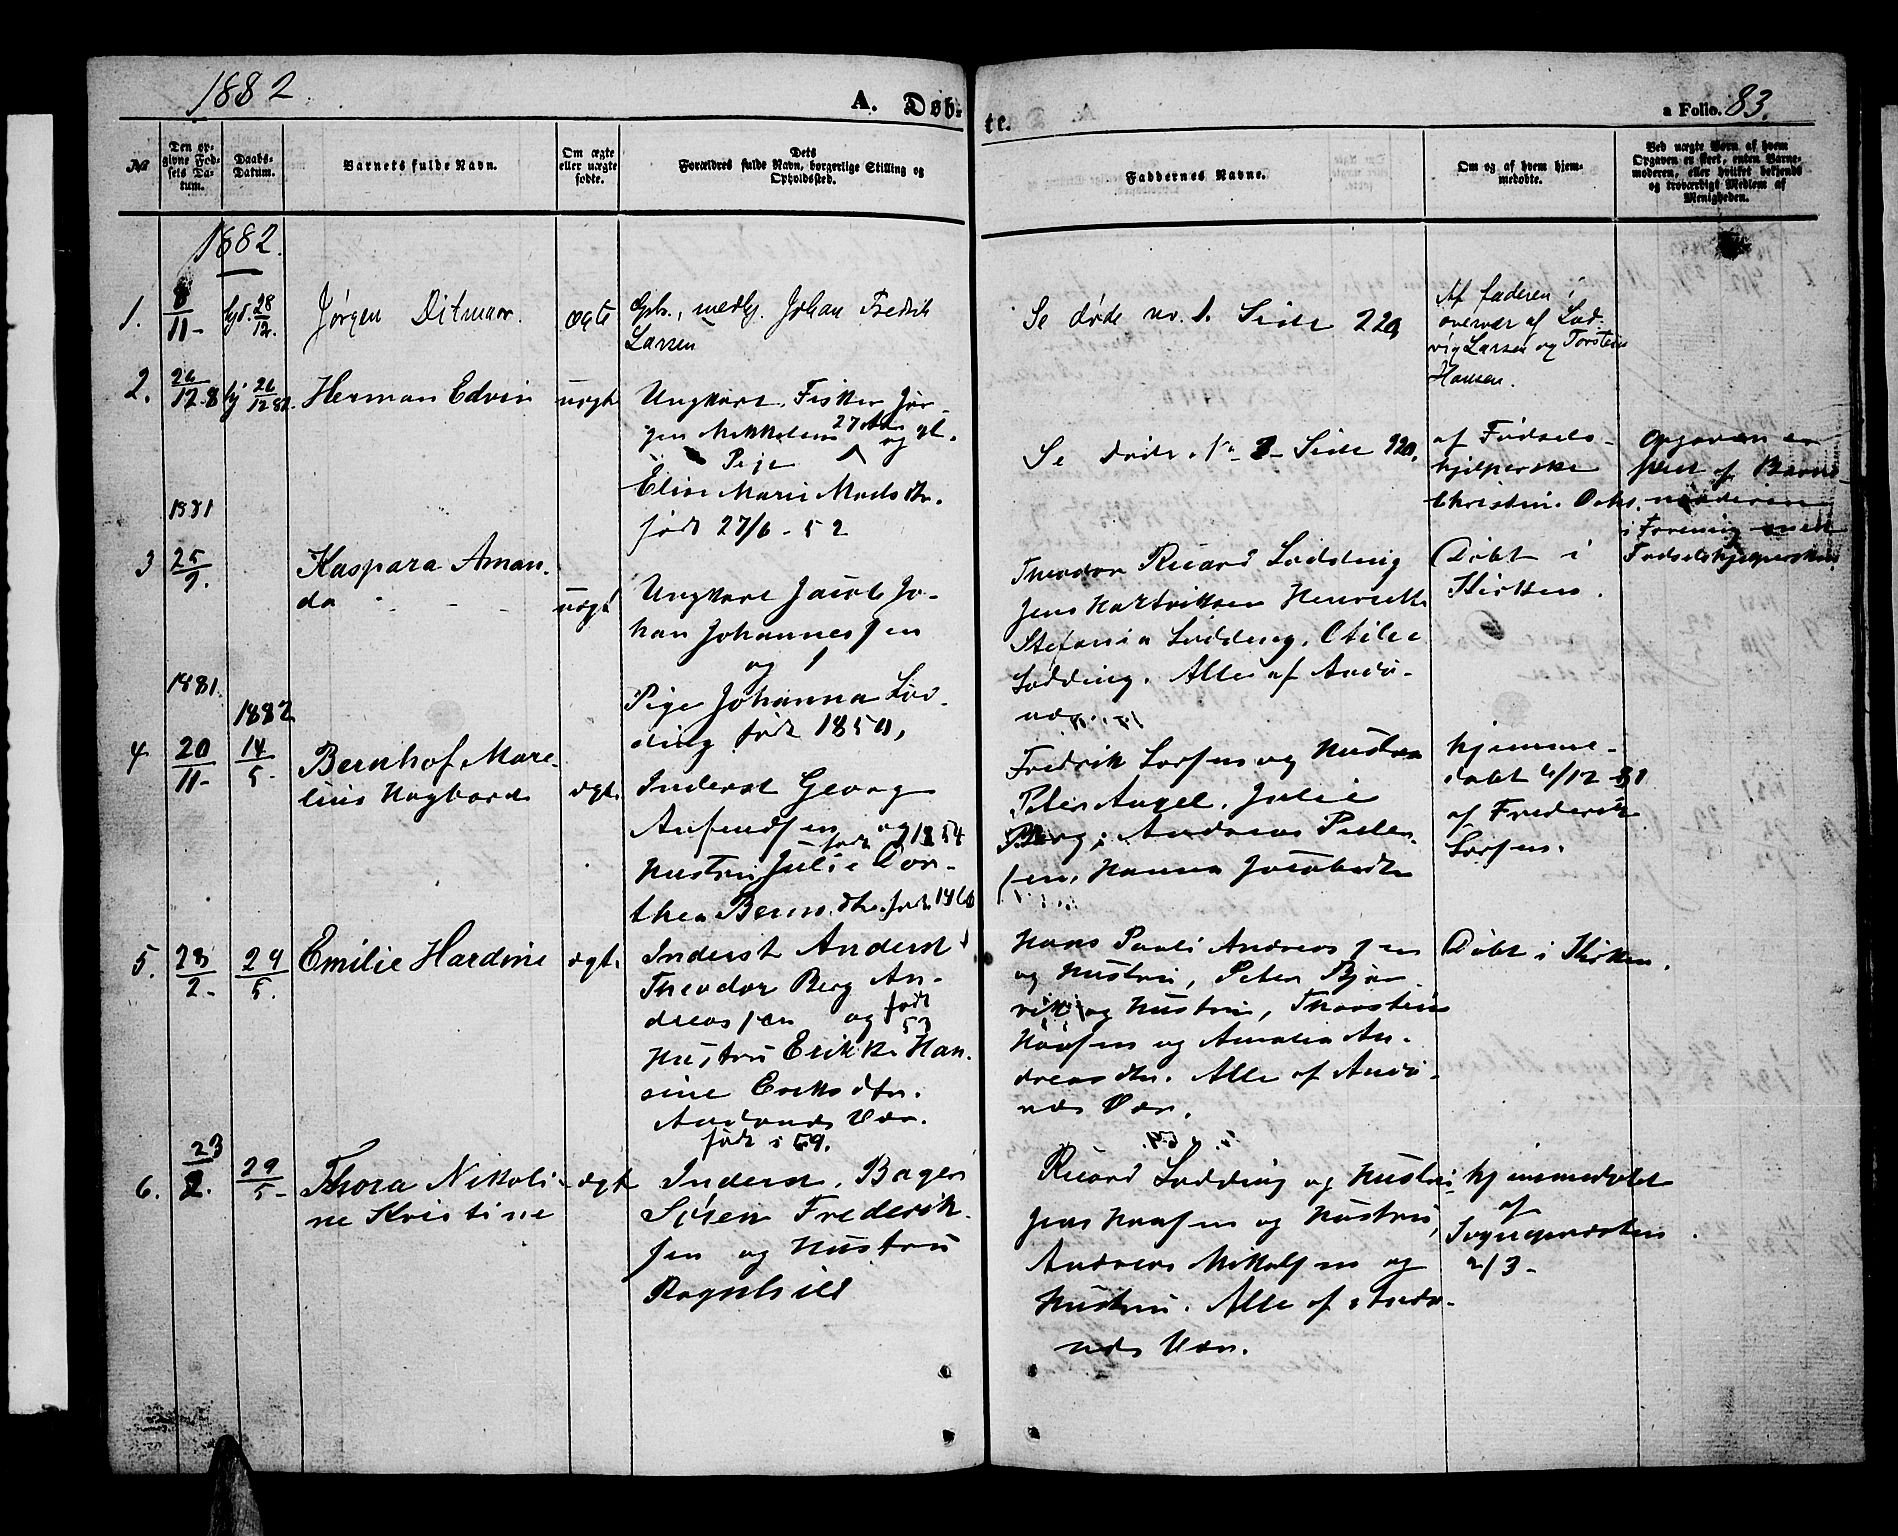 1882
A. Døb-
te.
a Folio. 83.
№
Den op-
givne Fød-
sels Da-
tum.
Daabs-
Datum.
Barnets fulde Navn.
Om ægte
eller uægte
fødte.
Dets
Forældres fulde Navn, borgerlige Stilling og
Opholdssted.
Faddernes Navne.
Om og af hvem hjem-
medøbt.
Ved uægte Børn af hvem
Opgaven er skeet, enten Barne-
moderen, eller hvilket bekjendt
og troværdigt Medlem af
Menigheden.
1882.
1. 8/11 - hjd. 28/12. Jørgen Ditmar. ægte
Gbr., medhj. Johan Fredrik
Larsen
Se døde no. 1. Side 220
Af faderen i
overvær af Lud-
vig Larsen og Torstein
Hansen.
2. 26/12.8 hj 26/12 82. Herman Edvin uægt
Ungkarl. Fisker Jør-
gen Mikkelsen 27 Aar og gl.
Pige
Elise Marie Madsdtr.
født 27/6 - 52
Se døde. No 2 - Side 220.
af Fødsels-
hjelperske
Christine
Opgaven er
skeet af Barne-
moderen
i Forening med
Fødselshjelpersken
1881
3 25/9. Kaspara Aman-
da uægt
Ungkarl Jacob Jo-
han Johannessen
og
Pige Johanna Lød-
ding født 1850,
Theodor Ricard Lødding
Jens Hartviksen Henriette
Stefania Lødding, Otilie
Lødding. Alle af Andø-
næs
Døbt i
Kirken.
1881.
1882
4 20/11 - 14/5 - Bernhof Mare-
lius Hagbard ægt.
Inderst Georg
Anfindsen og
født 1854
Hustru Julie Dor-
thea Bernt.dtr. født 1860
Fredrik Larsen og Hustru
Peter Angel. Julie
Berg, Andreas Peder-
sen, Hanna Jacobsdtr
hjemme-
døbt 4/12 - 81
af Frederik
Larsen.
5. 23/2 - 29/5. Emilie Hardine ægt.
Inderst Anderst
Theodor Berg An-
dreassen og født
53
Hustru Erikke Han-
sine Eriksdtr.
Andenæs Vær.
født i 59.
Hans Pauli Andreassen
og Hustru, Peter Bjør-
vik og Hustru, Thorstein
Hansen og Amalia An-
dreasdtr. Alle af Andø-
næs Vær.
Døbt i Kirken.
6. 23/2. 29/5 - Thora Nikoli-
ne Kristine ægt
Inderst, Bager
Søren Frederik-
sen og Hustru
Ragnhild
Ricard Lødding og Hustru
Jens Hansen og Hustru,
Andreas Nikolsen og
Hustru. Alle af Andø-
næs Vær.
hjemmedøbt
af
Sognepræsten
2/3 -